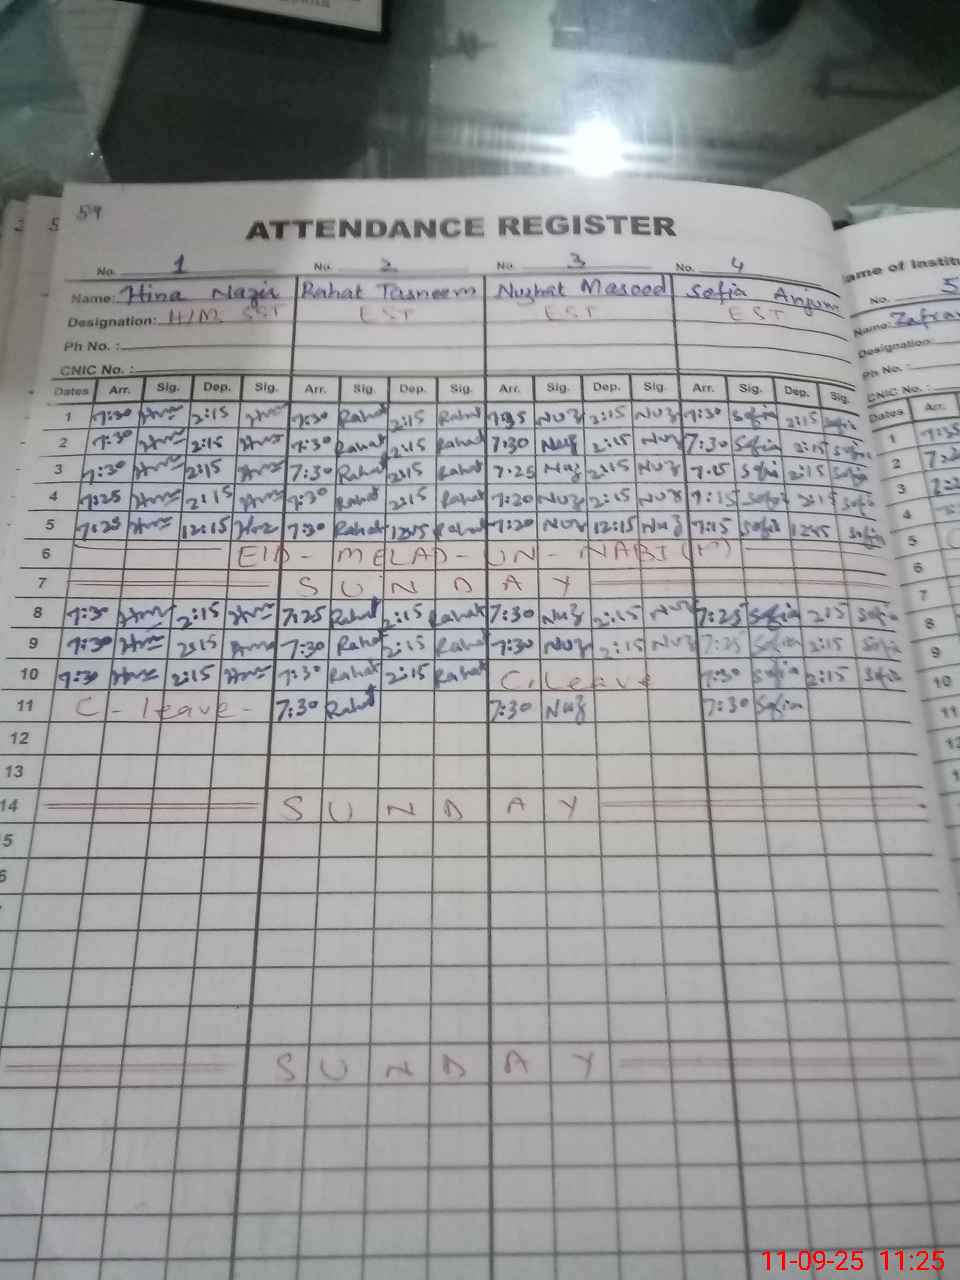 59
ATTENDANCE REGISTER
No. 1 No. 2 No. 3 No. 4
Name: Hina Nazir Rahat Tasneem Nuzhat Masood Sofia Anjum
Designation: H/M SST EST EST EST
Ph No. :
CNIC No. :
Dates Arr. Sig. Dep. Sig. Arr. Sig. Dep. Sig. Arr. Sig. Dep. Sig. Arr. Sig. Dep. Sig.
1 7:30 2:15 7:30 Rahat 2:15 Rahat Nuz 2:15 Nuz 7:30 Sofia 2:15 Sofia
2 7:30 2:15 7:30 Rahat 2:15 Rahat 7:30 Nuz 2:15 Nuz 7:30 Sofia 2:15 Sofia
3 7:30 2:15 7:30 Rahat 2:15 Rahat 7:25 Nuz 2:15 Nuz 7:15 Sofia 2:15 Sofia
4 7:25 2:15 7:30 Rahat 2:15 Rahat 7:20 Nuz 2:15 Nuz 7:15 Sofia 2:15 Sofia
5 7:25 12:15 7:30 Rahat 1215 Rahat 7:20 Nuz 12:15 Nuz 7:15 Sofia Sofia
6 EID - MELAD - UN - NABI
7 SUNDAY
8 7:30 2:15 7:25 Rahat 2:15 Rahat 7:30 Nuz 2:15 Nuz 7:25 Sofia 2:15 Sofia
9 7:30 2:15 7:30 Rahat 2:15 Rahat 7:30 Nuz 2:15 Nuz 7:25 Sofia 2:15 Sofia
10 7:30 2:15 7:30 Rahat 2:15 Rahat C. Leave 7:30 Sofia 2:15 Sofia
11 C - leave - 7:30 Rahat 7:30 Nuz 7:30 Sofia
12
13
14 SUNDAY
5
6
SUNDAY
ame of Institu
No. 5
Name: Zafra
Designation:
Ph No. :
CNIC No. :
Dates Arr.
1
2
3
4
5
6
7
8
9
10
11
12
11-09-25 11:25